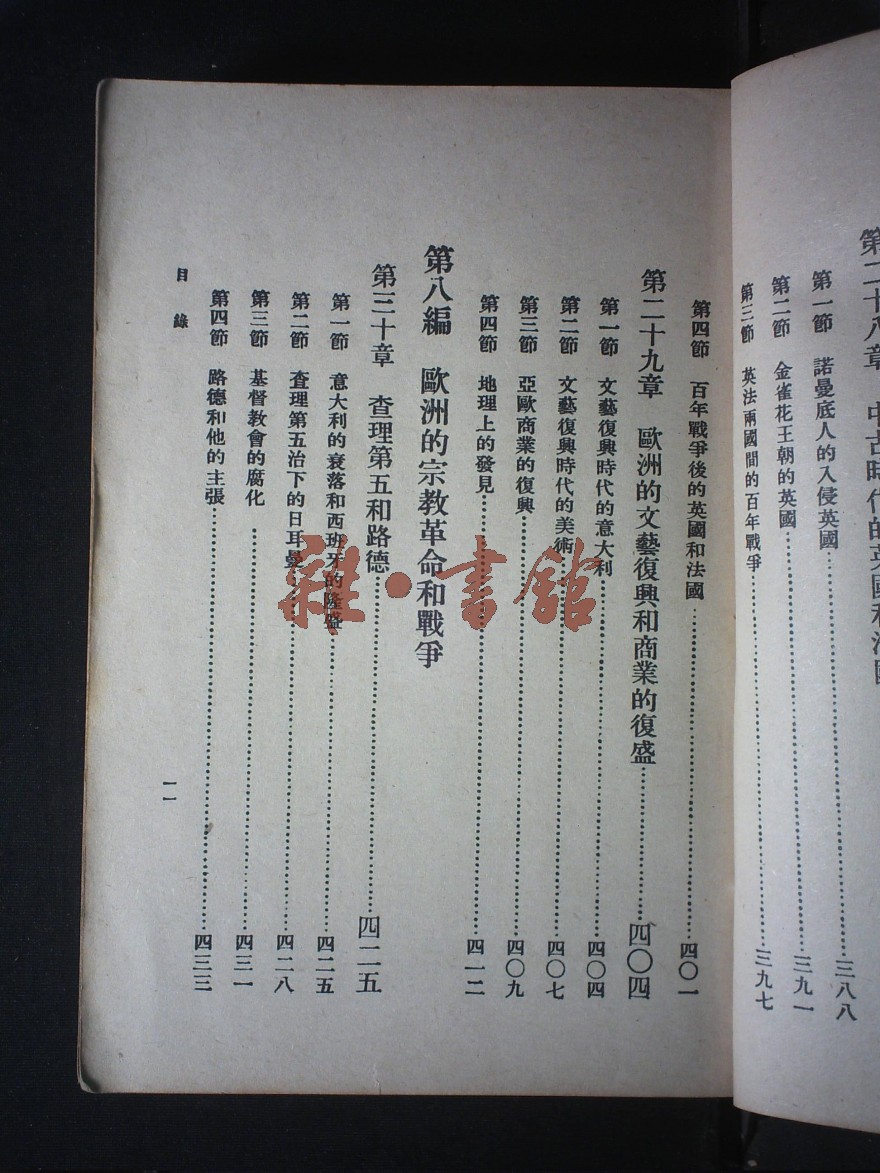 第二十八章　中古時代的英國和法國
第一節　諾曼底人的入侵英國……三八八
第二節　金雀花王朝的英國……三九一
第三節　英法兩國間的百年戰爭……三九七
第四節　百年戰爭後的英國和法國……四〇一
第二十九章　歐洲的文藝復興和商業的復盛……四〇四
第一節　文藝復興時代的意大利……四〇四
第二節　文藝復興時代的美術……四〇七
第三節　亞歐商業的復興……四〇九
第四節　地理上的發見……四一二
第八編　歐洲的宗教革命和戰爭
第三十章　查理第五和路德……四二五
第一節　意大利的衰落和西班牙的隆盛……四二五
第二節　查理第五治下的日耳曼……四二八
第三節　基督教會的腐化……四三一
第四節　路德和他的主張……四三三
目錄
一一
雜·書館